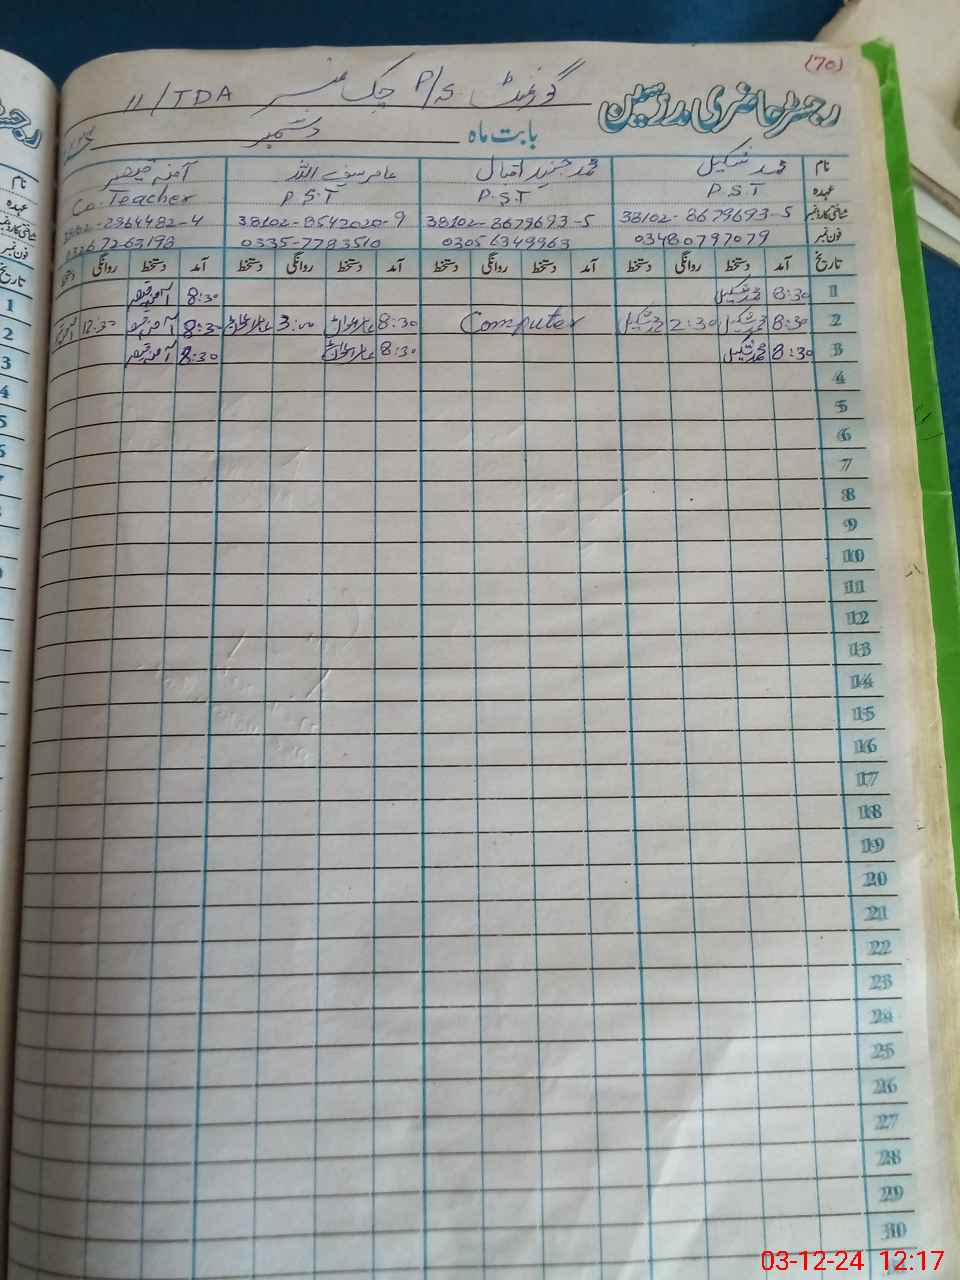 (70)
رجسٹر حاضری مدرسین
گورنمنٹ P/S چک نمبر 11/TDA
بابت ماہ دسمبر
نام محمد شکیل محمد جنید اقبال عامر سیف اللہ آمنہ قیصر
عہدہ P.S.T P.S.T P.S.T Co.Teacher
شناختی کارڈ نمبر 38102-8679693-5 38102-8679693-5 38102-8542020-9
فون نمبر 03480797079 03056349963 0335-7783510
تاریخ آمد دستخط روانگی دستخط آمد دستخط روانگی دستخط آمد دستخط روانگی دستخط آمد دستخط روانگی دستخط
1 8:30 محمد شکیل 8:30 آمنہ قیصر
2 8:30 محمد شکیل 2:30 محمد شکیل Computer 8:30 3:00 8:30 آمنہ قیصر 12:30
3 8:30 محمد شکیل 8:30 8:30 آمنہ قیصر
4
5
6
7
8
9
10
11
12
13
14
15
16
17
18
19
20
21
22
23
24
25
26
27
28
29
30
03-12-24 12:17